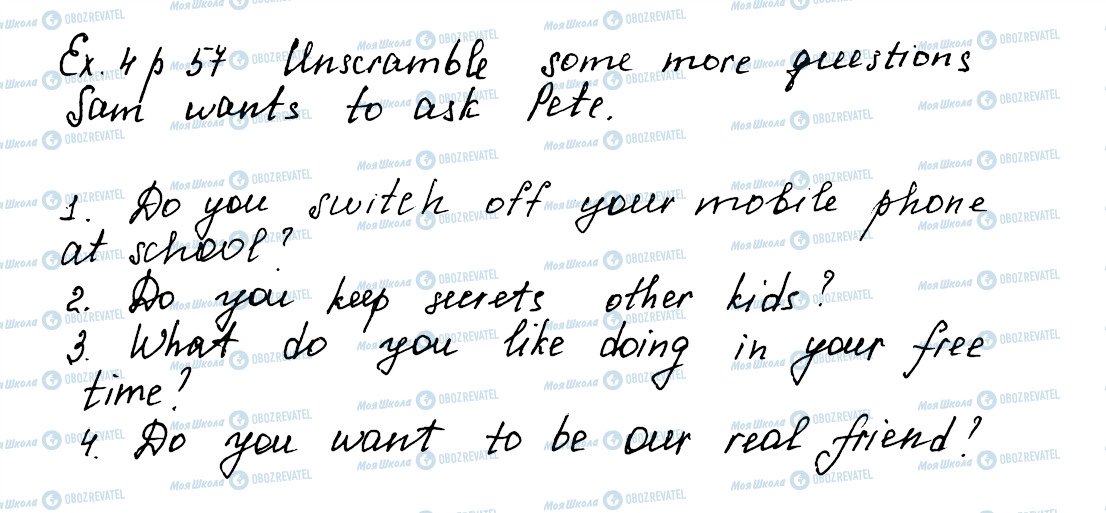 Ex. 4 p 57 Unscramble some more questions
Sam wants to ask Pete.
1. Do you switch off your mobile phone
at school?
2. Do you keep secrets other kids?
3. What do you like doing in your free
time?
4. Do you want to be our real friend?